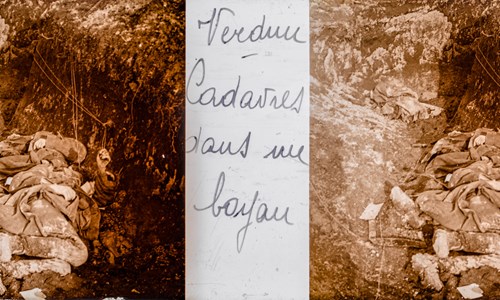 Verdun
-
Cadavres
dans un
boyau